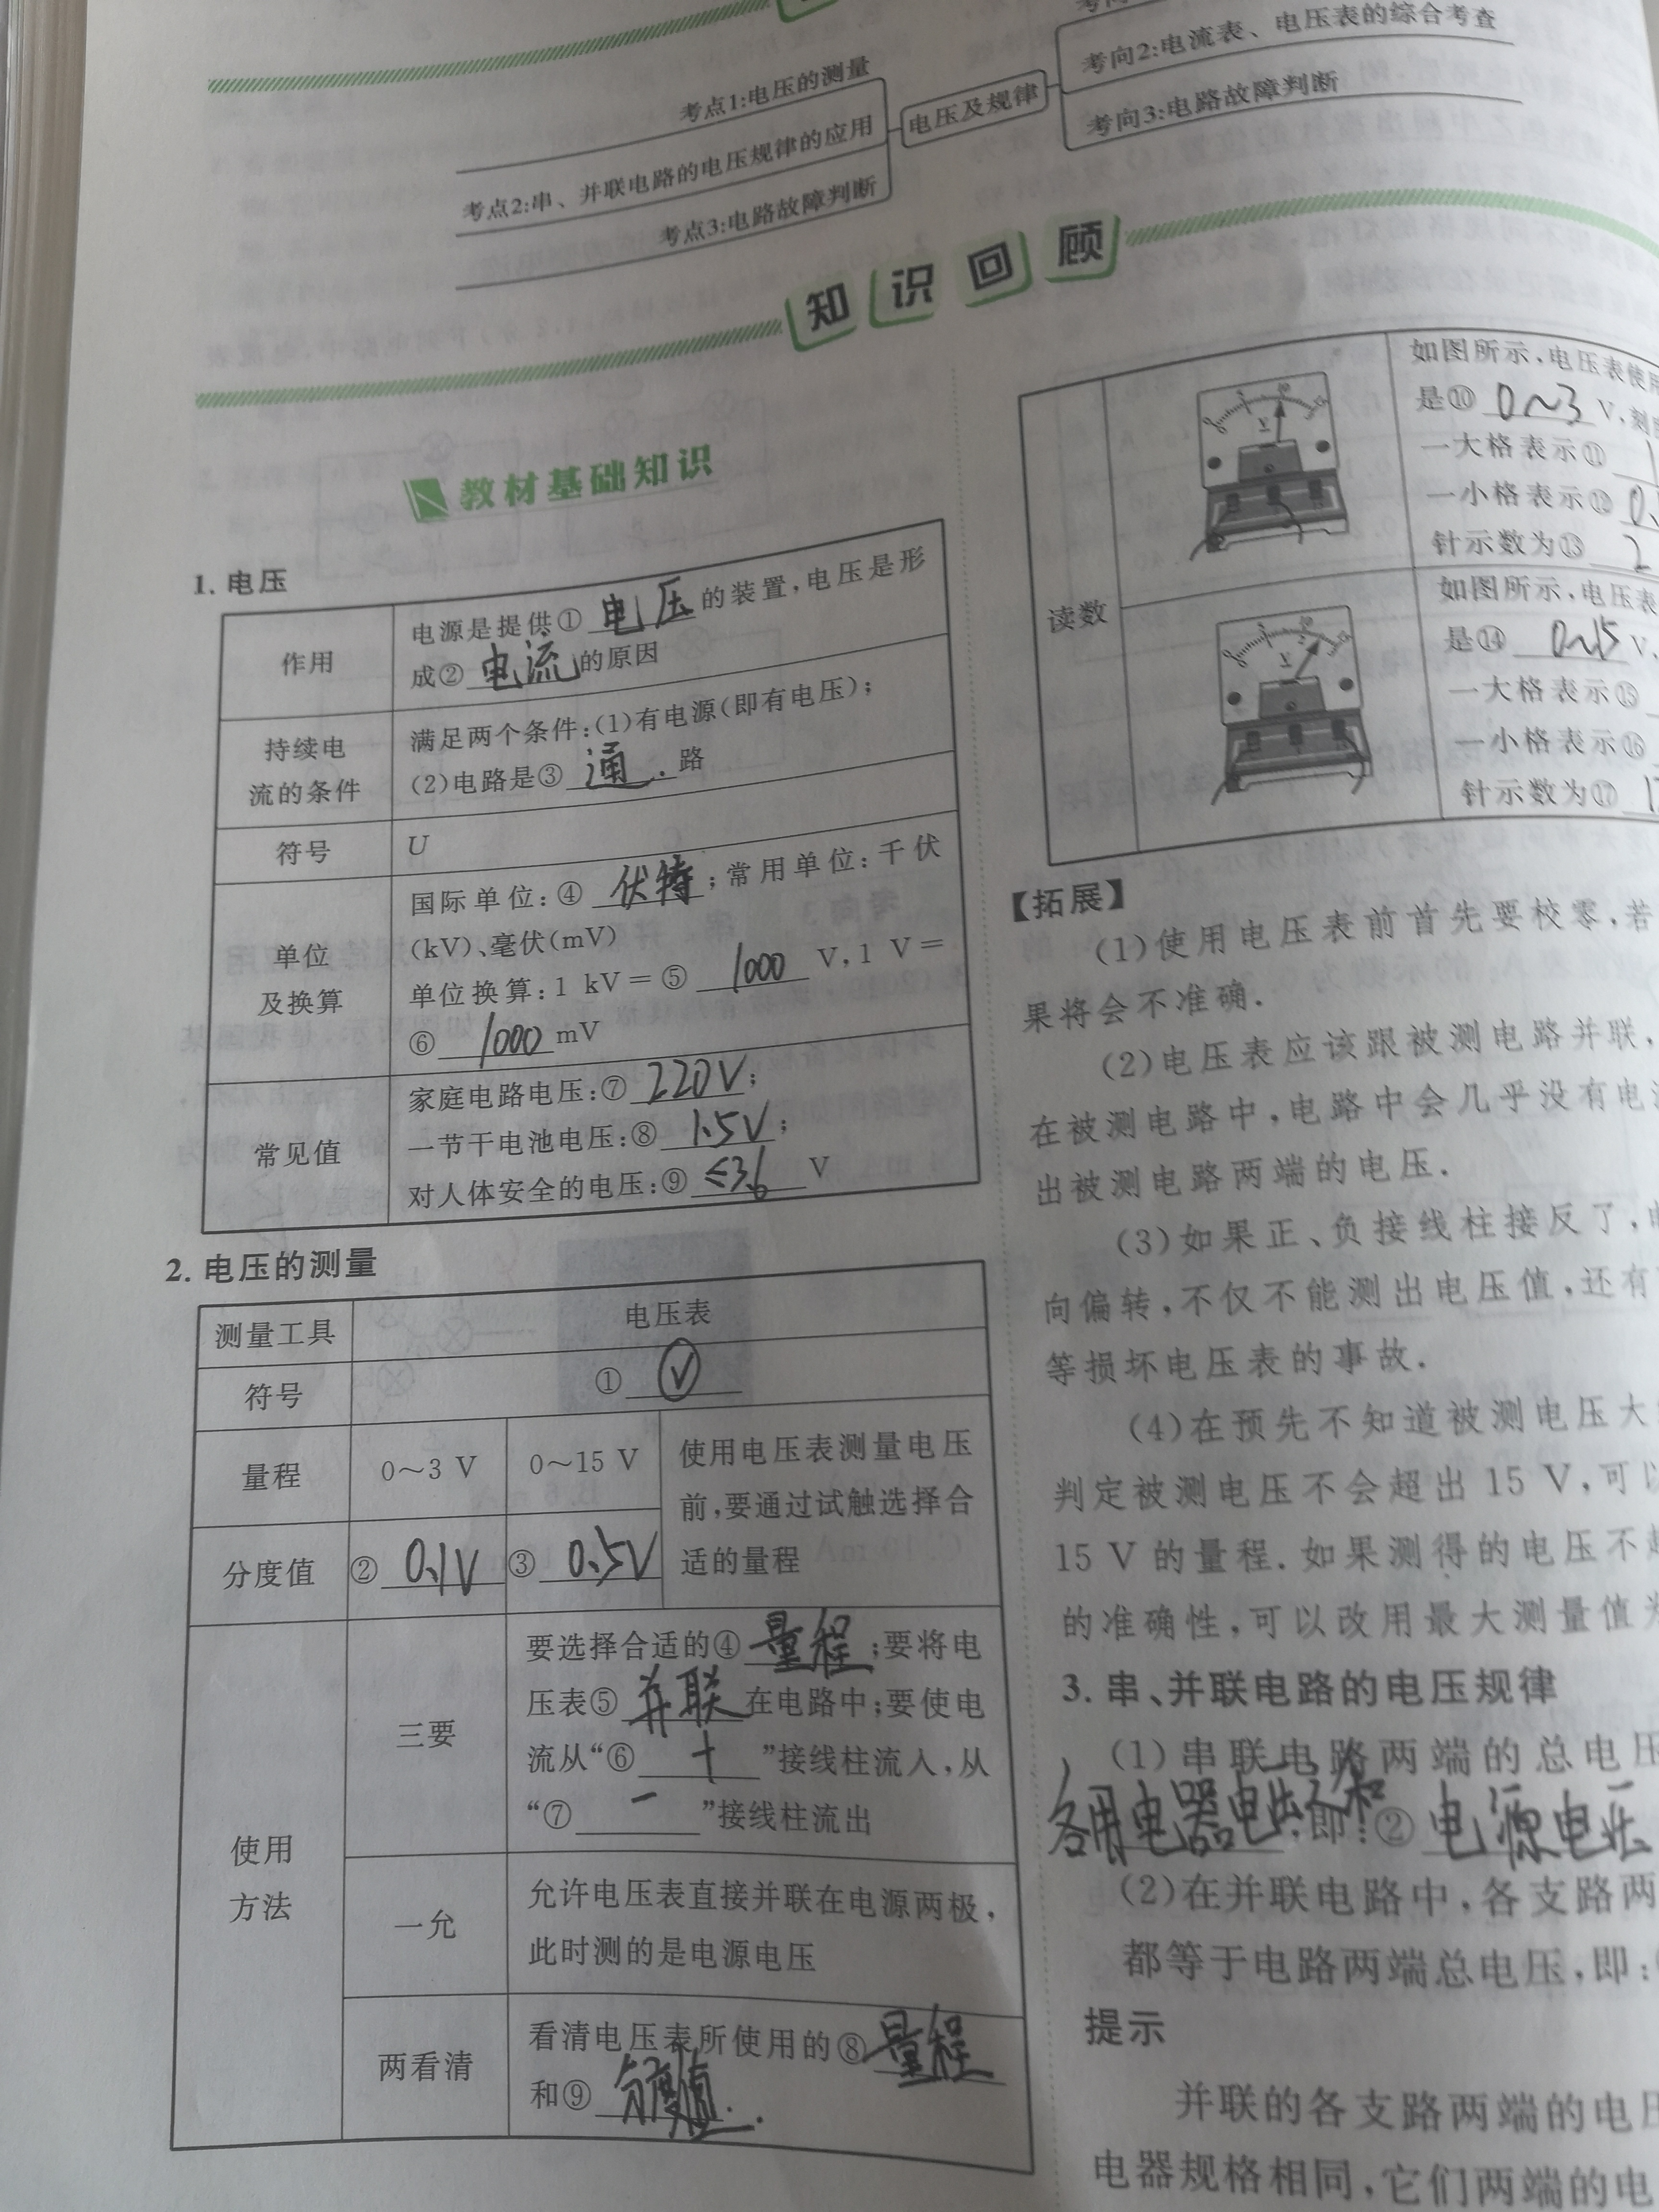 考点1:电压的测量
考点2:串、并联电路的电压规律的应用
考点3:电路故障判断
电压及规律
考向2:电流表、电压表的综合考查
考向3:电路故障判断
知识回顾
教材基础知识
1. 电压
作用
电源是提供① 电压 的装置,电压是形
成② 电流 的原因
持续电
流的条件
满足两个条件:(1)有电源(即有电压);
(2)电路是③ 通 路
符号
U
单位
及换算
国际单位:④ 伏特 ;常用单位:千伏
(kV)、毫伏(mV)
单位换算:1 kV=⑤ 1000 V,1 V=
⑥ 1000 mV
常见值
家庭电路电压:⑦ 220V ;
一节干电池电压:⑧ 1.5V ;
对人体安全的电压:⑨ ≤36 V
2. 电压的测量
测量工具
电压表
符号
① V
量程
0～3 V
0～15 V
使用电压表测量电压
前,要通过试触选择合
适的量程
分度值
② 0.1V
③ 0.5V
使用
方法
三要
要选择合适的④ 量程 ;要将电
压表⑤ 并联 在电路中;要使电
流从“⑥ + ”接线柱流入,从
“⑦ － ”接线柱流出
一允
允许电压表直接并联在电源两极,
此时测的是电源电压
两看清
看清电压表所使用的⑧ 量程
和⑨ 分度值.
读数
如图所示,电压表使
是⑩ 0～3 V,
一大格表示⑪
一小格表示⑫ 0.
针示数为⑬ 2
如图所示,电压表
是⑭ 0～15 V,
一大格表示⑮
一小格表示⑯
针示数为⑰ 1
【拓展】
(1)使用电压表前首先要校零,若
果将会不准确.
(2)电压表应该跟被测电路并联,
在被测电路中,电路中会几乎没有电
出被测电路两端的电压.
(3)如果正、负接线柱接反了,
向偏转,不仅不能测出电压值,还有
等损坏电压表的事故.
(4)在预先不知道被测电压大
判定被测电压不会超出 15 V,可
15 V 的量程.如果测得的电压不
的准确性,可以改用最大测量值
3. 串、并联电路的电压规律
(1)串联电路两端的总电压
各用电器电压之和 ,即:② 电源电压
(2)在并联电路中,各支路两
都等于电路两端总电压,即:
提示
并联的各支路两端的电压
电器规格相同,它们两端的电